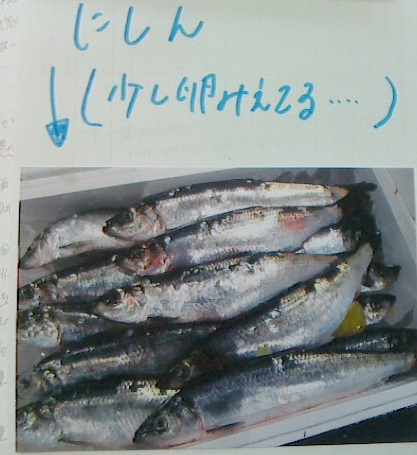 にしん
(少し卵みえてる‥‥)